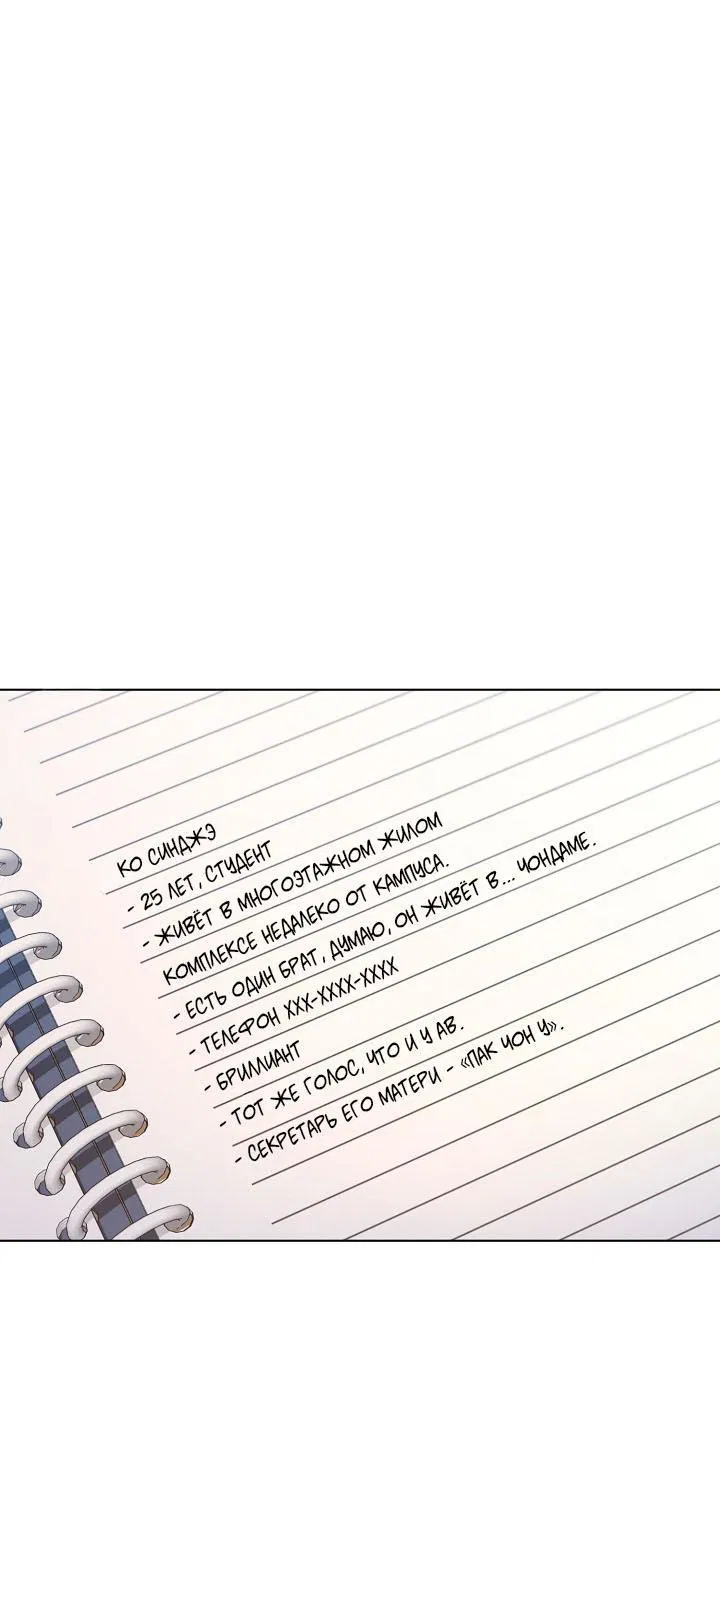 КО СИНДЖЭ
- 25 ЛЕТ, СТУДЕНТ
- ЖИВЁТ В МНОГОЭТАЖНОМ ЖИЛОМ
КОМПЛЕКСЕ НЕДАЛЕКО ОТ КАМПУСА.
- ЕСТЬ ОДИН БРАТ, ДУМАЮ, ОН ЖИВЁТ В... ЧОНДАМЕ.
- ТЕЛЕФОН XXX-XXXX-XXXX
- БРИЛЛИАНТ
- ТОТ ЖЕ ГОЛОС, ЧТО И У АВ.
- СЕКРЕТАРЬ ЕГО МАТЕРИ - «ПАК ЧОН У».